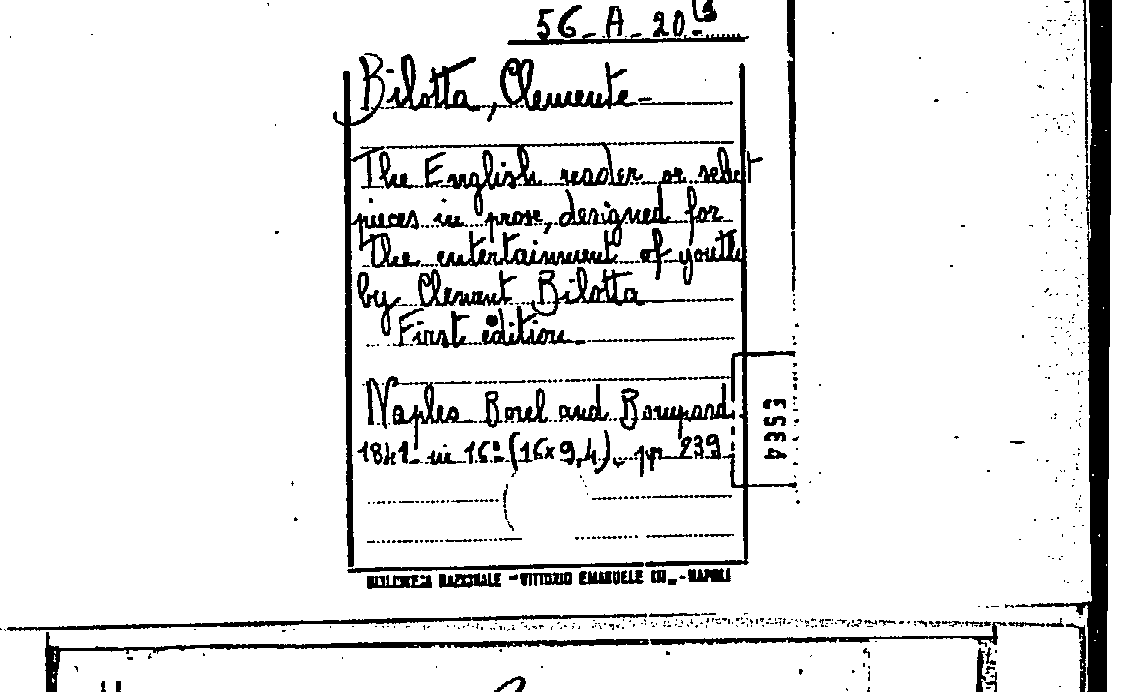 56-A-20 13
Bilotta, Clemente-
The English reader or select
pieces in prose, designed for
the entertainment of youth
by Clement Bilotta
First edition.
Naples Borel and Bompard
1841 in 16° (16x9,4). pp 239
4353
BIBLIOTECA NAZIONALE "VITTORIO EMANUELE III" - NAPOLI